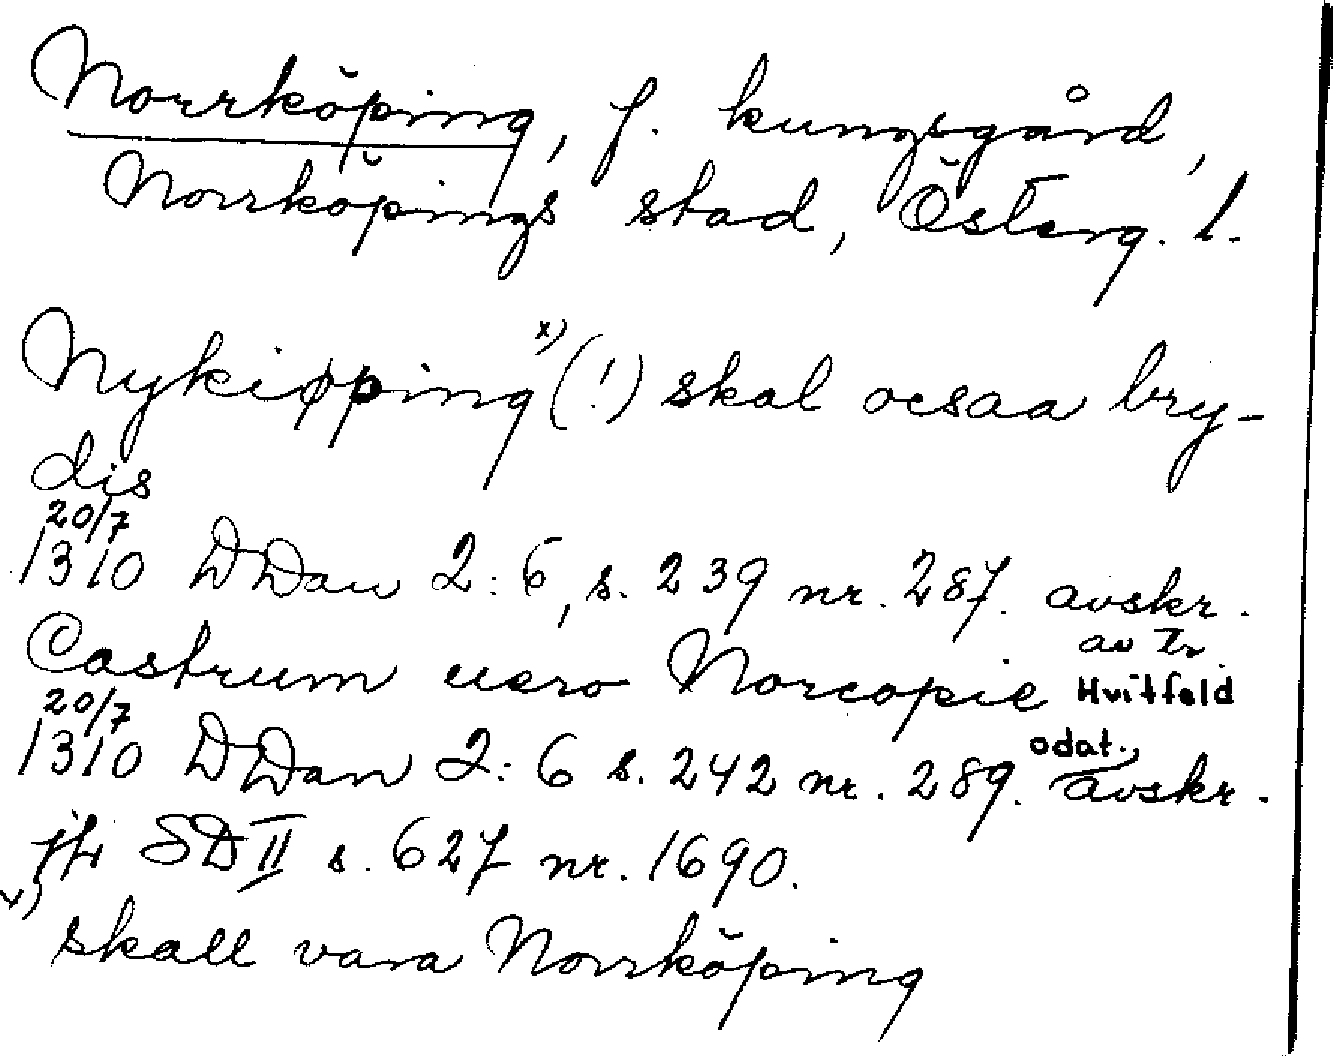 Norrköping, f. kungsgård,
Norrköpings stad, Österg. l.
Nykiøpping x) (!) skal ocsaa bry-
dis
20/7
1310 DDan 2:6, s. 239 nr. 287. avskr.
av Tr.
Castrum uero Norcopie Hvitfeld
20/7
1310 DDan 2:6 s. 242 nr. 289. odat., avskr.
jfr SD II s. 627 nr. 1690.
x) skall vara Norrköping